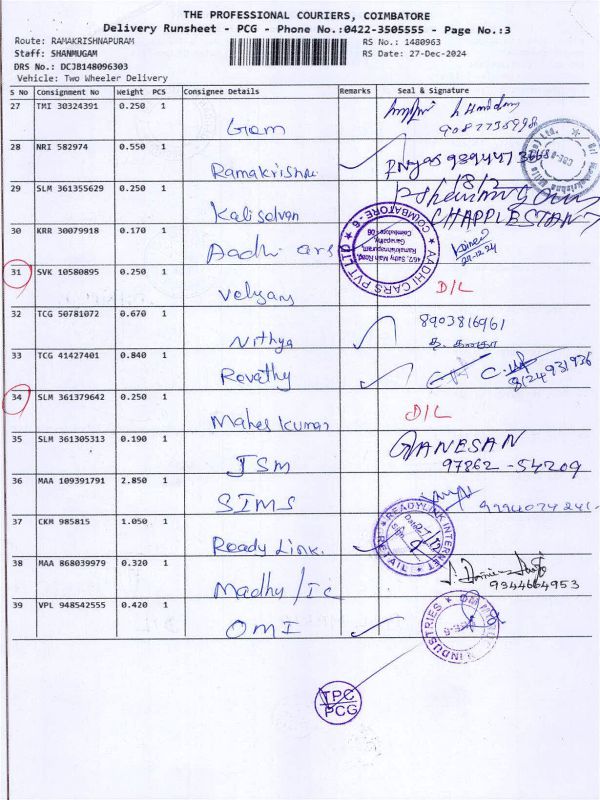 THE PROFESSIONAL COURIERS, COIMBATORE
Delivery Runsheet - PCG - Phone No.:0422-3505555 - Page No.:3
Route: RAMAKRISHNAPURAM RS No.: 1480963
Staff: SHANMUGAM RS Date: 27-Dec-2024
DRS No.: DCJB148096303
Vehicle: Two Wheeler Delivery
S No Consignment No Weight PCS Consignee Details Remarks Seal & Signature
27 TMI 30324391 0.250 1
28 NRI 582974 0.550 1 Ramakrishna
29 SLM 361355629 0.250 1 Kaliselvan
CHAPPLESTAN
30 KRR 30079918 0.170 1 Aadhi cars
AADHI CARS PVT LTD COIMBATORE - 6
462, Sathy Main Road,
Ramakrishnapuram,
Ganapathy,
Coimbatore-06
27.12.24
31 SVK 10580895 0.250 1 Velyans D/L
32 TCG 50781072 0.670 1 Nithya 8903816961
33 TCG 41427401 0.840 1 Revathy 8124931936
34 SLM 361379642 0.250 1 Mahes kumar D/L
35 SLM 361305313 0.190 1 JSM GANESAN
97862-54209
36 MAA 109391791 2.850 1 SIMS
37 CKM 985815 1.050 1 Ready Link. READYLINK INTERNET RETAIL
38 MAA 868039979 0.320 1 Madhy/Ic 9344664953
39 VPL 948542555 0.420 1 OMI INDUSTRIES
TPC
PCG